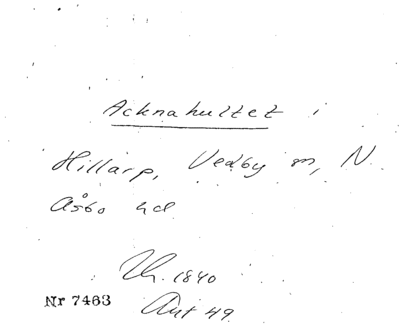 Acknahultet i
Hillarp, Vedby sn, N.
Åsbo hd.
Th. 1840
Nr 7463 Ant 49.